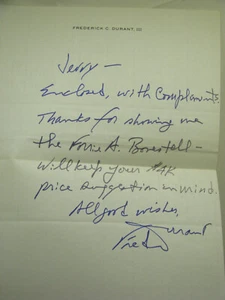 FREDERICK C. DURANT, III
Jerry —
Enclosed, with Compliments.
Thanks for showing me
the Forrie A. Bonestell —
Will keep your $4K
price suggestion in mind.
All good wishes,
Fred Durant